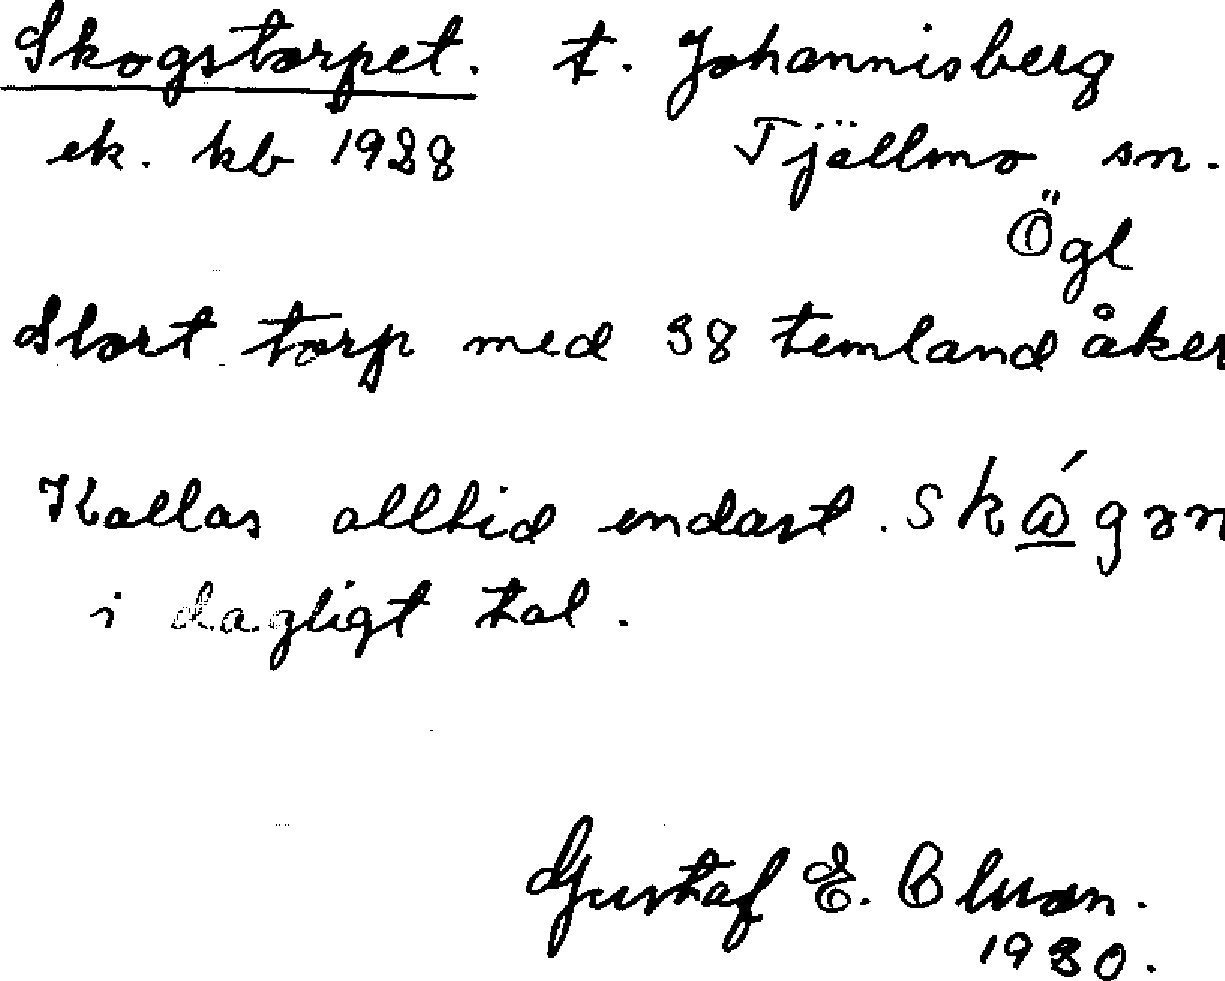 Skogstorpet. t. Johannisberg
ek. kb 1928 Tjällmo sn.
Ögl
Stort torp med 38 åker
Kallas alltid endast.
i dagligt tal.
Gustaf E.
1930.